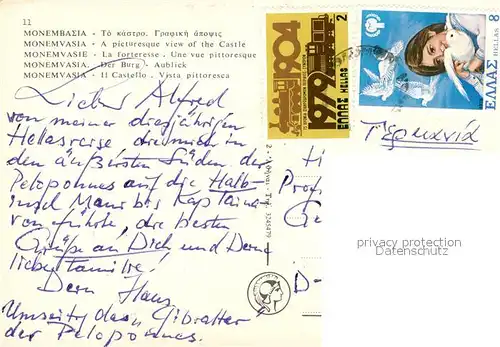 11
ΜΟΝΕΜΒΑΣΙΑ - Τό κάστρο. Γραφική άποψις
MONEMVASIA - A picturesque view of the Castle
MONEMVASIE - La forteresse. Une vue pittoresque
MONEMVASIA. Der Burg - Aublick
MONEMVASIA - Il Castello. Vista pittoresca
1904
1979
ΕΛΛΑΣ HELLAS
2
ΕΛΛΑΣ HELLAS
8
Γερμανία
Lieber Alfred
von meiner diesjährigen
Hellasreise die mich in
den äußersten Süden der
Peloponnes auf die Halb-
insel Mani bis Kap
führte, die besten
Grüße an Dich und Deine
liebe Familie!
Dein Hans
das Gibraltar
der Peloponnes.
2 - Αθήναι - Τηλ. 3245479
H
Prof
G
D-
privacy protection
Datenschutz